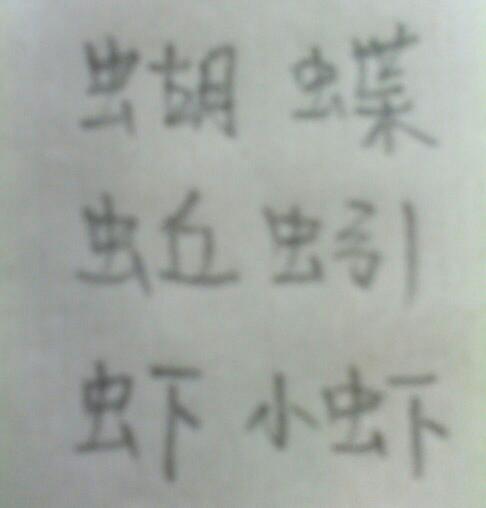 蝴 蝶
蚯 蚓
虾 小虾